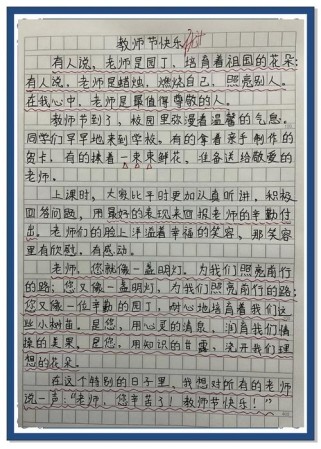 教师节快乐
有人说，老师是园丁，培育着祖国的花朵；
有人说，老师是蜡烛，燃烧自己，照亮别人。
在我心中，老师是最值得尊敬的人。
教师节到了，校园里弥漫着温馨的气息。
同学们早早地来到学校。有的拿着亲手制作的
贺卡，有的捧着一束束鲜花，准备送给敬爱的
老师。
上课时，大家比平时更加认真听讲，积极
回答问题，用最好的表现来回报老师的辛勤付
出。老师们的脸上洋溢着幸福的笑容，那笑容
里有欣慰，有感动。
老师，您就像一盏明灯，为我们照亮前行
的路；您又像一盏明灯，为我们照亮前行的路；
您又像一位辛勤的园丁，耐心地培育着我们这
些小树苗。是您，用心灵的清泉，润育我们情
操的美果。是您，用知识的甘露，浇开我们理
想的花朵。
在这个特别的日子里，我想对所有的老师
说一声：“老师，您辛苦了！教师节快乐！”